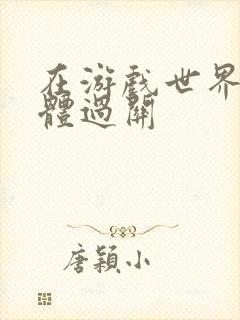 在游戲世界
體過關
唐穎小